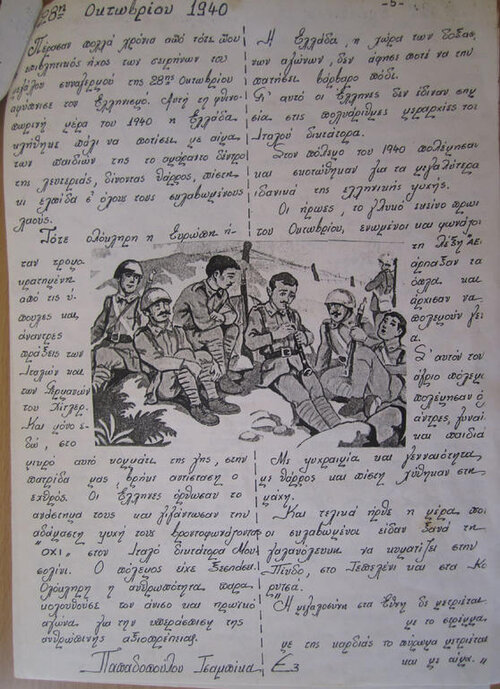 28ης Οκτωβρίου 1940
-5-
Πέρασαν πολλά χρόνια από τότε που
επιβλητικός ήχος των σειρήνων του
συναγερμού της 28ης Οκτωβρίου
τον Ελληνισμό. Αυτή τη φθινο-
πωρινή μέρα του 1940 η Ελλάδα
πάλι να ποτίσει με αίμα
των παιδιών της το αμάραντο δέντρο
της λευτεριάς, δίνοντας θάρρος, πίστη
κι ελπίδα σ' όλους τους σκλαβωμένους
λαούς.
Τότε ολόκληρη η Ευρώπη ή-
ταν τρομο-
κρατημένη
από τις ύ-
πουλες και
άναντρες
πράξεις των
Ιταλών και
των Γερμανών
του Χίτλερ.
Και μόνο ε-
δώ, στο
μικρό αυτό κομμάτι της γης, στην
πατρίδα μας βρήκε αντίσταση ο
εχθρός. Οι Έλληνες όρθωσαν το
ανάστημά τους και γιγάντωσαν την
αδάμαστη ψυχή τους βροντοφωνάζοντας
"ΟΧΙ" στον Ιταλό δικτάτορα Μου-
σολίνι. Ο πόλεμος είχε ξεσπάσει.
Ολόκληρη η ανθρωπότητα παρα-
κολουθούσε τον άνισο και ηρωικό
αγώνα, για την υπεράσπιση της
ανθρώπινης αξιοπρέπειας.
Παπαδοπούλου Τσαμπίκα Ε3
Η Ελλάδα, η χώρα των δοξασ-
των αγώνων, δεν άφησε ποτέ να την
πατήσει βάρβαρο πόδι.
Γι' αυτό οι Έλληνες δεν έδιναν ση
σία στις πολυάριθμες μεραρχίες του
Ιταλού δικτάτορα.
Στον πόλεμο του 1940 πολέμησαν
και σκοτώθηκαν για τα μεγαλύτερα
ιδανικά της ελληνικής ψυχής.
Οι ήρωες, το γλυκό εκείνο πρωι
του Οκτωβρίου, ενωμένοι και φωνάζο
τη λέξη ΑΕ
άρπαξαν τα
όπλα και
άρχισαν να
πολεμούν γε
α.
Σ' αυτόν τον
άγριο πόλεμο
πολέμησαν ό
άντρες, γυναί
και παιδιά
Με ψυχραιμία και γενναιότητα
με θάρρος και πίστη χύθηκαν στη
μάχη.
Και τελικά ήρθε η μέρα που
οι σκλαβωμένοι είδαν ξανά τη
γαλανόλευκη να κυματίζει στην
Πίνδο, στο Τεπελένι και στα Κο
ρυτσα.
"Η μεγαλοσύνη στα Έθνη δε μετριέται
με το στρέμμα,
με της καρδιάς το πύρωμα μετριέται
και με αίμα."